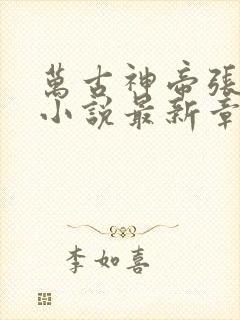 萬古神帝張
小說最新章
李如喜